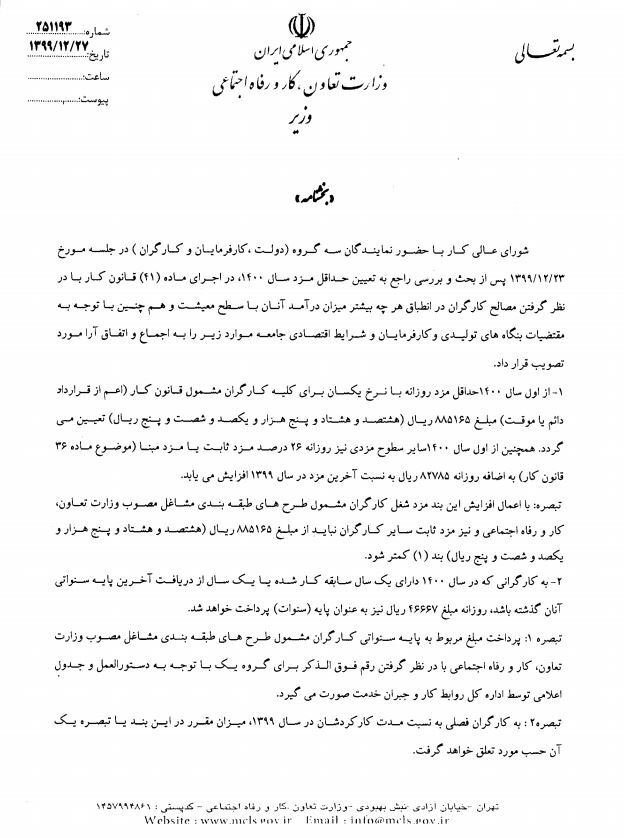 بسمه تعالی
جمهوری اسلامی ایران
وزارت تعاون، کار و رفاه اجتماعی
وزیر
شماره: ۲۵۱۱۹۳
تاریخ: ۱۳۹۹/۱۲/۲۷
ساعت:
پیوست:
«بخشنامه»
شورای عالی کار با حضور نمایندگان سه گروه (دولت ،کارفرمایان و کارگران ) در جلسه مورخ
۱۳۹۹/۱۲/۲۳ پس از بحث و بررسی راجع به تعیین حداقل مزد سال ۱۴۰۰، در اجرای ماده (۴۱) قانون کار با در
نظر گرفتن مصالح کارگران در انطباق هر چه بیشتر میزان درآمد آنان با سطح معیشت و هم چنین با توجه به
مقتضیات بنگاه های تولیدی وکارفرمایان و شرایط اقتصادی جامعه موارد زیر را به اجماع و اتفاق آرا مورد
تصویب قرار داد.
۱- از اول سال ۱۴۰۰حداقل مزد روزانه با نرخ یکسان برای کلیه کارگران مشمول قانون کار (اعم از قرارداد
دائم یا موقت) مبلغ ۸۸۵۱۶۵ ریال (هشتصد و هشتاد و پنج هزار و یکصد و شصت و پنج ریال) تعیین می
گردد. همچنین از اول سال ۱۴۰۰سایر سطوح مزدی نیز روزانه ۲۶ درصد مزد ثابت یا مزد مبنا (موضوع ماده ۳۶
قانون کار) به اضافه روزانه ۸۲۷۸۵ ریال به نسبت آخرین مزد در سال ۱۳۹۹ افزایش می یابد.
تبصره: با اعمال افزایش این بند مزد شغل کارگران مشمول طرح های طبقه بندی مشاغل مصوب وزارت تعاون،
کار و رفاه اجتماعی و نیز مزد ثابت سایر کارگران نباید از مبلغ ۸۸۵۱۶۵ ریال (هشتصد و هشتاد و پنج هزار و
یکصد و شصت و پنج ریال) بند (۱) کمتر شود.
۲- به کارگرانی که در سال ۱۴۰۰ دارای یک سال سابقه کار شده یا یک سال از دریافت آخرین پایه سنواتی
آنان گذشته باشد، روزانه مبلغ ۴۶۶۶۷ ریال نیز به عنوان پایه (سنوات) پرداخت خواهد شد.
تبصره ۱: پرداخت مبلغ مربوط به پایه سنواتی کارگران مشمول طرح های طبقه بندی مشاغل مصوب وزارت
تعاون، کار و رفاه اجتماعی با در نظر گرفتن رقم فوق الذکر برای گروه یک با توجه به دستورالعمل و جدول
اعلامی توسط اداره کل روابط کار و جبران خدمت صورت می گیرد.
تبصره۲ : به کارگران فصلی به نسبت مدت کارکردشان در سال ۱۳۹۹، میزان مقرر در این بند یا تبصره یک
آن حسب مورد تعلق خواهد گرفت.
تهران -خیابان آزادی -نبش بهبودی -وزارت تعاون ،کار و رفاه اجتماعی - کدپستی : ۱۴۵۷۹۹۴۸۶۱
Website : www.mcls.gov.ir Email : info@mcls.gov.ir